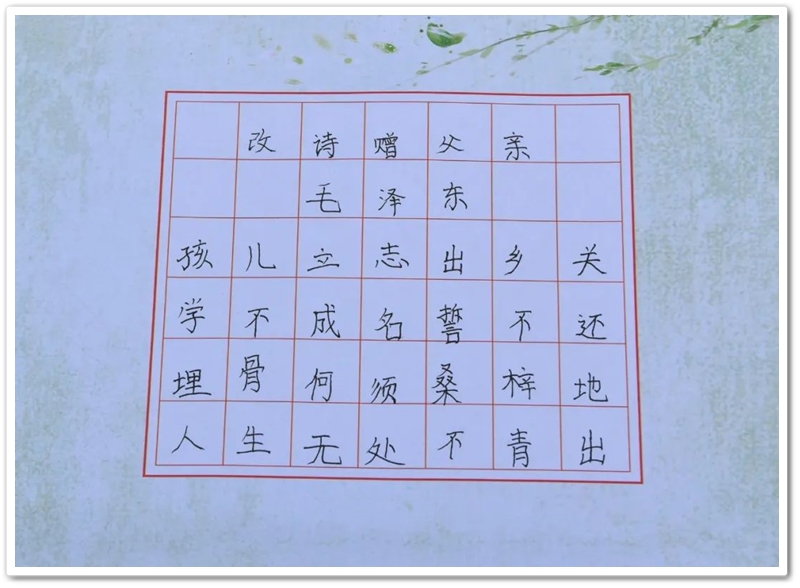 改诗赠父亲
毛泽东
孩儿立志出乡关
学不成名誓不还
埋骨何须桑梓地
人生无处不青出